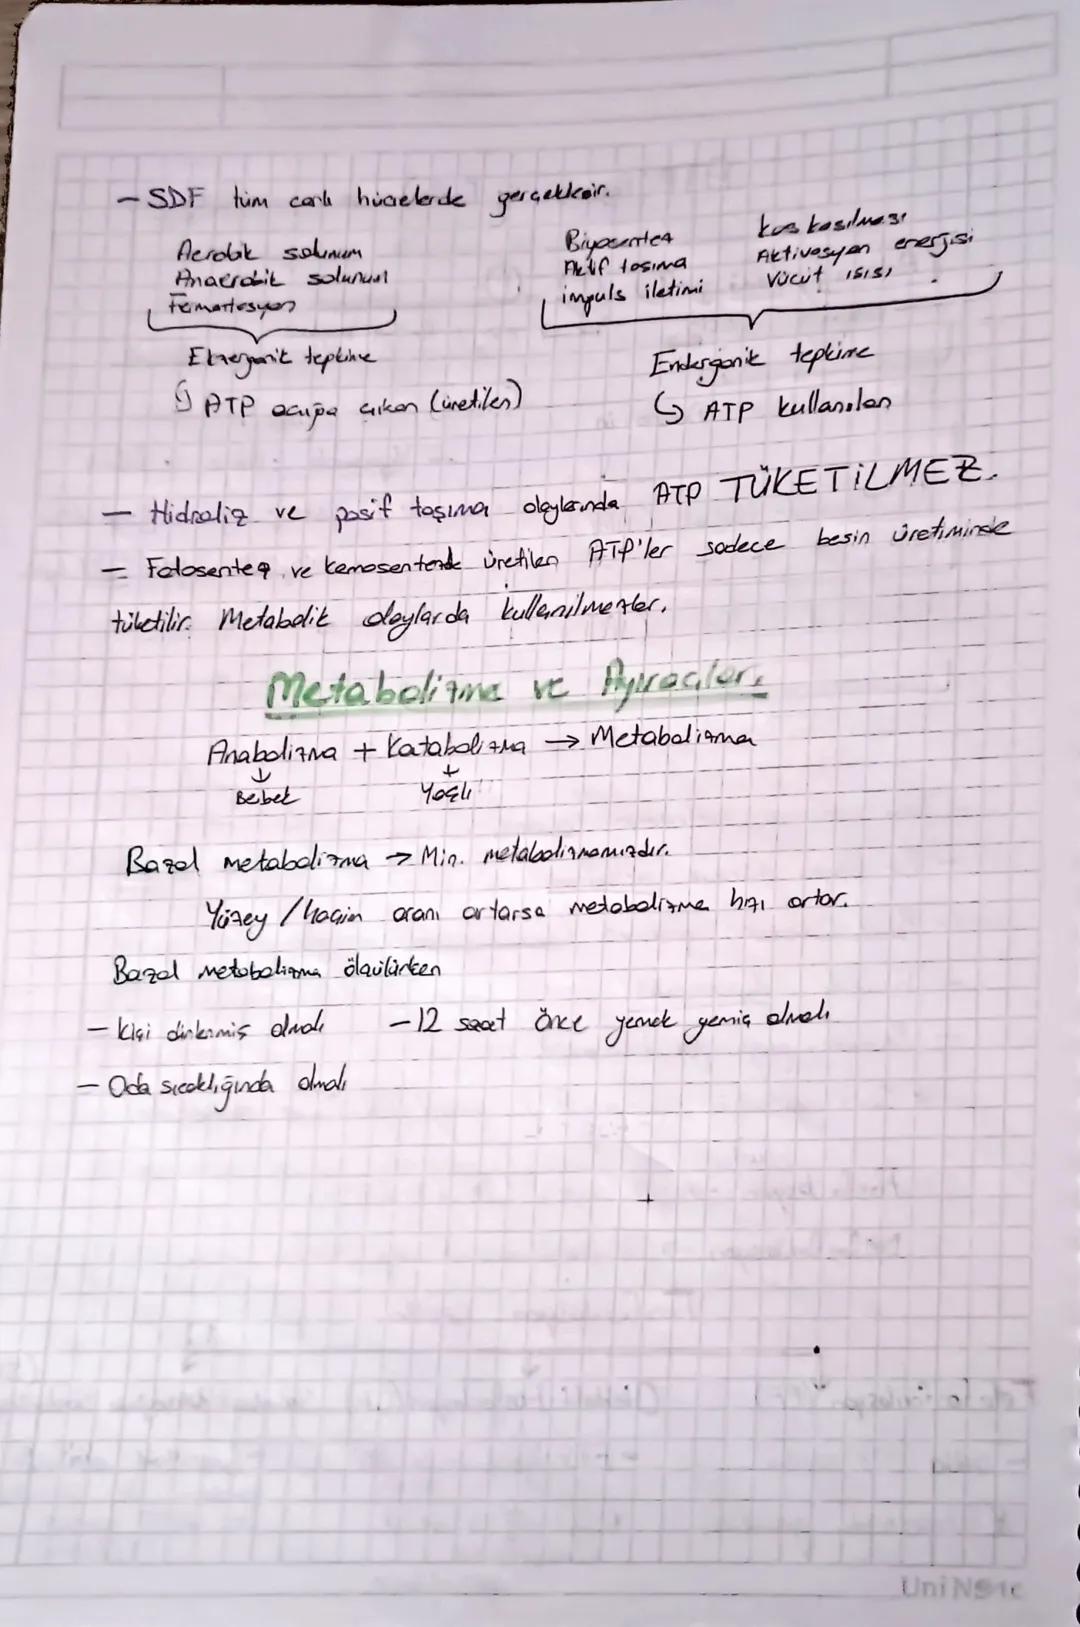 - SDF tüm canlı hücrelerde gerçekleşir.
Aerobik solunum
Anaerobik solunum
Fermantasyon
Ekzergonik tepkime
↳ ATP açığa çıkan (üretilen)
Biyosentez
Aktif taşıma
impuls iletimi
kas kasılması
Aktivasyon enerjisi
Vücut ısısı
Endergonik tepkime
↳ ATP kullanılan
- Hidroliz ve pasif taşıma olaylarında ATP TÜKETİLMEZ.
- Fotosentez ve kemosentezde üretilen ATP'ler sadece besin üretiminde
tüketilir. Metabolik olaylarda kullanılmazlar.
Metabolizma ve Ayıraçlar
Anabolizma + Katabolizma → Metabolizma
↓ Bebek ↓ Yaşlı
Bazal metabolizma → Min. metabolizmamızdır.
Yüzey / hacim oranı artarsa metabolizma hızı artar.
Bazal metabolizma ölçülürken
- kişi dinlenmiş olmalı - 12 saat önce yemek yemiş olmalı
- Oda sıcaklığında olmalı
UniNote